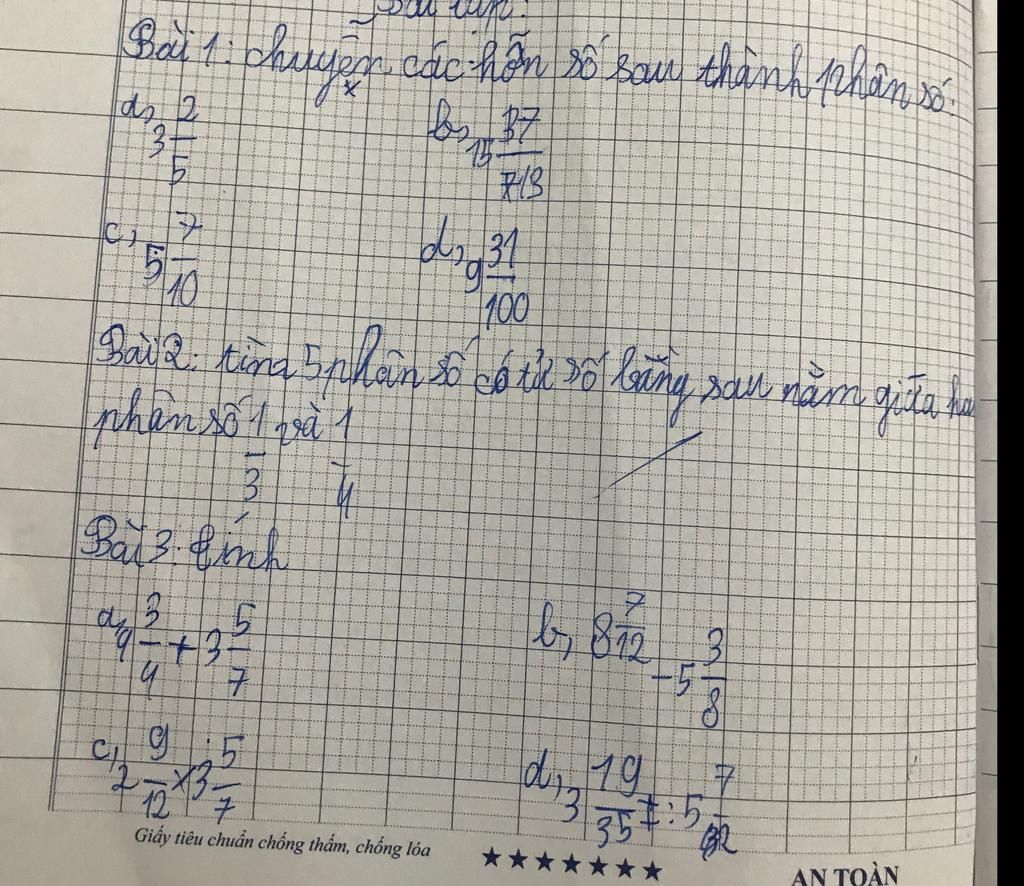 Bài tập:
Bài 1: chuyển các hỗn số sau thành phân số.
a, 3 2/5 b, 15 37/713
c, 5 7/10 d, 9 31/100
Bài 2: tìm 5 phân số có tử số bằng sau nằm giữa ha
phân số 1/3 và 1/4
Bài 3: tính
a, 9 3/4 + 3 5/7 b, 8 7/12 - 5 3/8
c, 2 9/12 x 3 5/7 d, 3 19/35 : 5 7/
Giấy tiêu chuẩn chống thấm, chống lóa
★★★★★★★ AN TOÀN